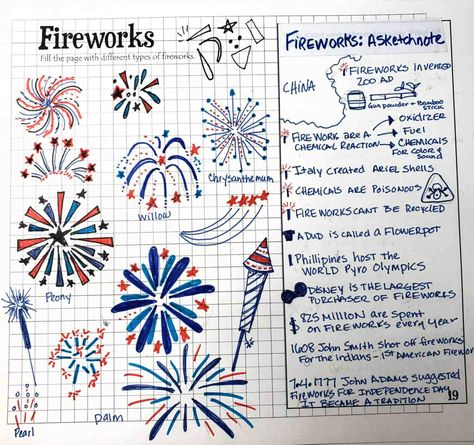 Fireworks
Fill the page with different types of fireworks.
Chrysanthemum
Willow
Peony
Pearl
Palm
FIREWORKS: A SKETCHNOTE
CHINA
FIREWORKS INVENTED
200 AD
GUN POWDER + BAMBOO
STICK
OXIDIZER
FIREWORK ARE A
CHEMICAL REACTION
FUEL
CHEMICALS
FOR COLOR &
SOUND
ITALY CREATED ARIEL SHELLS
CHEMICALS ARE POISONOUS
FIREWORKS CANT BE RECYCLED
A DUD IS CALLED A FLOWERPOT
PHILLIPINES HOST THE
WORLD PYRO OLYMPICS
DISNEY IS THE LARGEST
PURCHASER OF FIREWORKS
$825 MILLION ARE SPENT
ON FIREWORKS EVERY YEAR
1608 JOHN SMITH SHOT OFF FIREWORKS
FOR THE INDIANS - 1ST AMERICAN FIREWOR
7•4•1777 JOHN ADAMS SUGGESTED
FIREWORKS FOR INDEPENDENCE DAY
IT BECAME A TRADITION
19